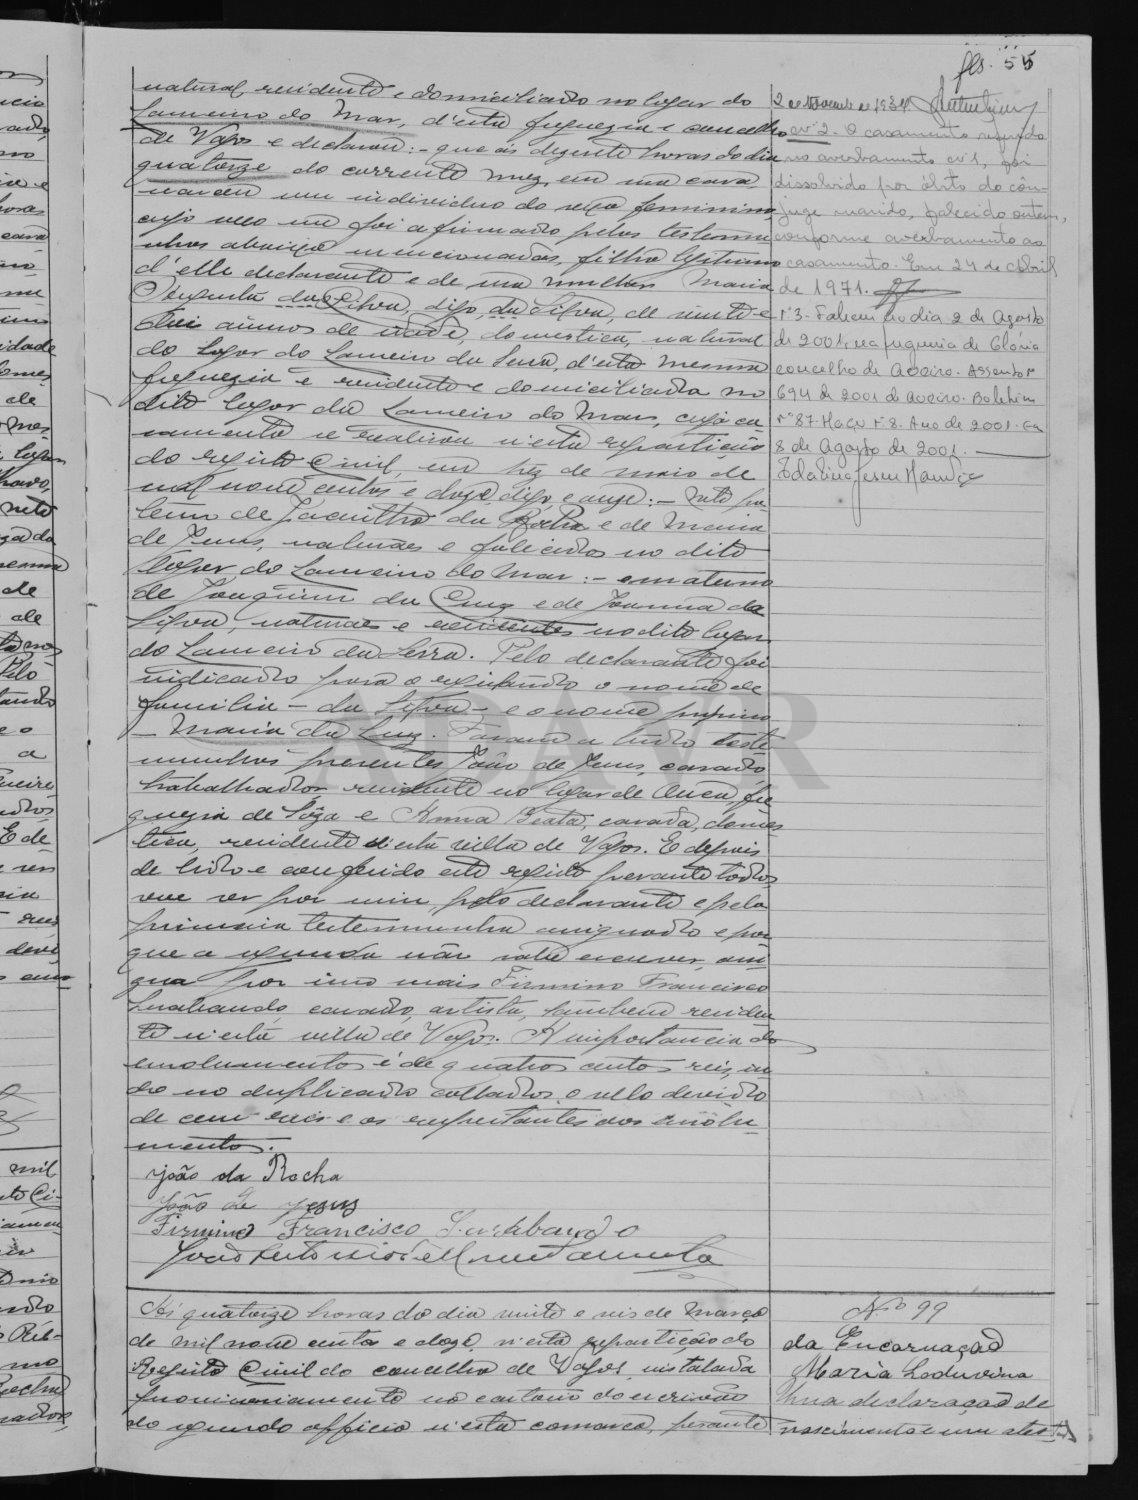 fls. 55
natural, residente e domiciliado no logar do
Lameiro do Mar, d'esta freguezia e concelho
de Vagos e declarou: - que ás dezesete horas do dia
quatorze do corrente mez, em uma casa
nasceu um individuo do sexo feminino,
cujo sexo me foi afirmado pelas testemu-
nhas abaixo mencionadas, filho legitimo
d'elle declarante e de sua mulher Maria
da Silva, digo, da Silva, de vinte e
annos de idade, domestica, natural
do logar do Lameiro da Serra, d'esta mesma
freguezia e residente e domiciliada no
dito logar do Lameiro do Mar, cujo ca-
samento se realizou n'esta repartição
do registo Civil, em dez de maio de
mil nove centos e doze, digo, e onze: - Neto pa-
terno de Jacintho da Rocha e de Maria
de Jesus, naturaes e falecidos no dito
logar do Lameiro do Mar: - e materno
de Joaquim da Cruz e de Joanna da
Silva, naturaes e residentes no dito logar
do Lameiro da Serra. Pelo declarante foi
indicado para o registando o nome de
familia - da Silva - e o nome proprio
- Maria da Luz. Foram a tudo teste-
munhas presentes João de Jesus, casado
trabalhador residente no logar de Ouca, fre-
guezia de Sôza e Anna Beata, casada, domes-
tica, residente n'esta villa de Vagos. E depois
de lido e conferido este registo perante todos,
vae ser por mim, pelo declarante e pela
primeira testemunha assignado e por
que a segunda não sabe escrever, assi-
gna por isso mais Firmino Francisco
casado, artista, tambem residen-
te n'esta villa de Vagos. A importancia dos
emolumentos é de quatro centos reis, in-
do no duplicado collados o sello devido
de cem reis e os respeitantes aos emolu-
mentos.
João da Rocha
João de Jesus
Firmino Francisco
João Antonio
2 de Novembro de 1934
Av. nº 2 - O casamento referido
no averbamento nº 1, foi
dissolvido por óbito do côn-
juge marido, falecido ontem,
conforme averbamento ao
casamento. Em 24 de Abril
de 1971.
Nº 3 - Faleceu no dia 2 de Agosto
de 2001, na freguesia da Glória
concelho de Aveiro. Assento nº
694 de 2001 de Aveiro. Boletim
nº 87. Maço nº 8. Ano de 2001. Em
8 de Agosto de 2001.
ADAVR
Ás quatorze horas do dia vinte e seis de Março
de mil nove centos e doze, n'esta repartição do
Registo Civil do concelho de Vagos, installada
provisoriamente no cartorio do escrivão
do segundo officio n'esta comarca, perante
Nº 99
da Encarnação
Maria Loduvina
Uma declaração de
nascimento e um atest